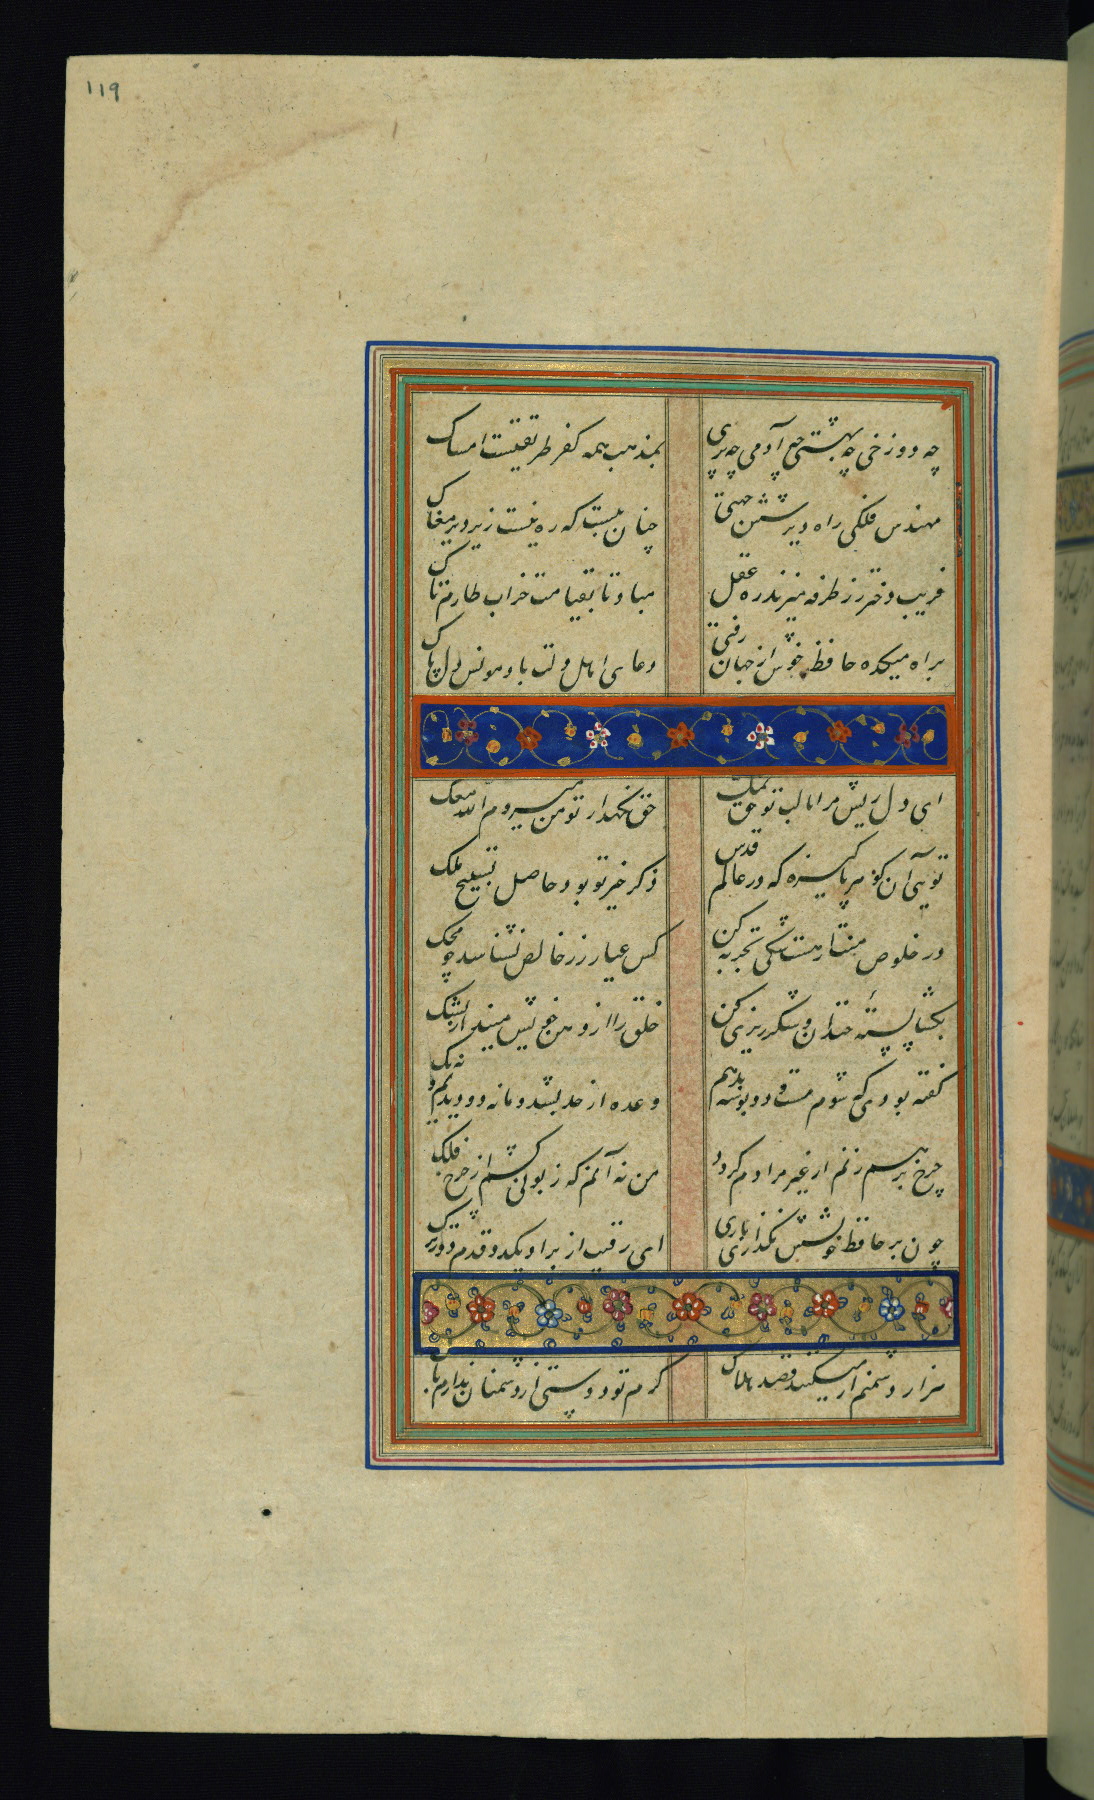 119
چه دوزخی چه بهشتی چه آدمی چه پری بمذهب همه کفر طریقتست امساک
مهندس فلکی راه دیر شش جهتی چنان ببست که ره نیست زیر دیر مغاک
فریب دختر رز طرفه میزند ره عقل مباد تا بقیامت خراب طارم تاک
براه میکده حافظ خوش از جهان رفتی دعای اهل دلت باد مونس دل پاک
ای دل ریش مرا با لب تو حق نمک حق نگهدار تو من میروم الله معک
تویی آن گوهر پاکیزه که در عالم قدس ذکر خیر تو بود حاصل تسبیح ملک
در خلوص منت ار هست شکی تجربه کن کس عیار زر خالص نشناسد چو محک
بگشا پسته خندان و شکرریزی کن خلق را از دهن خویش مینداز بشک
گفته بودی که شوم مست و دو بوست بدهم وعده از حد بشد و ما نه دو دیدیم و نه یک
چرخ برهم زنم ار غیر مرادم گردد من نه آنم که زبونی کشم از چرخ فلک
چون بر حافظ خویشش نگذاری باری ای رقیب از بر او یکدو قدم دورترک
هزار دشمنم ار میکنند قصد هلاک گرم تو دوستی از دشمنان ندارم باک